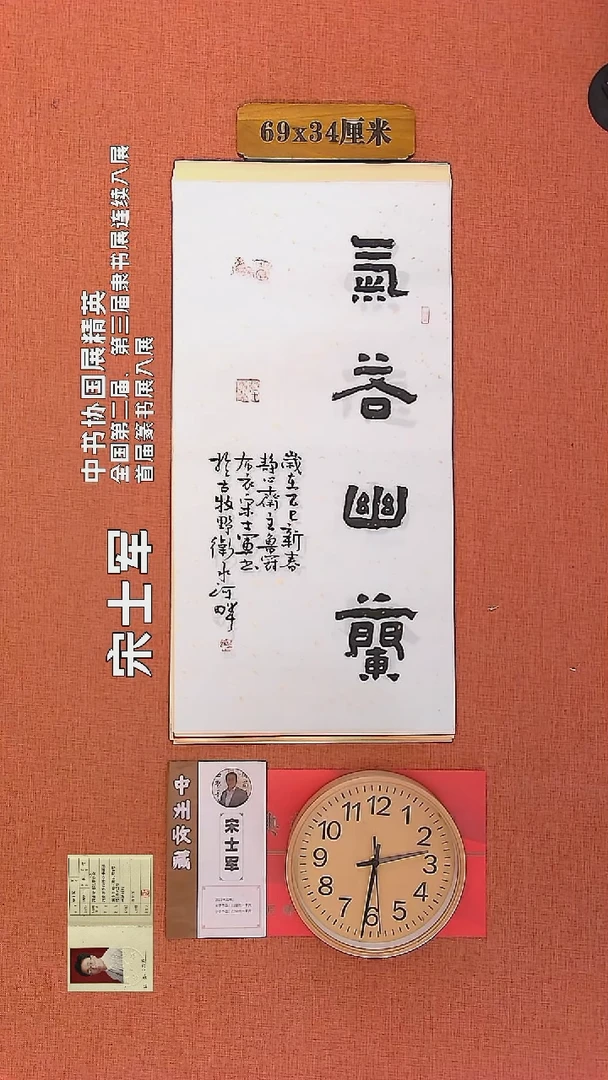 69x34厘米
氣若幽蘭
歲在乙巳新春
静心齋主魯爵
布衣宋士軍书
於古牧野衛水河畔
中书协国展精英
全国第二届、第三届隶书展连续入展
首届篆书展入展
宋士军
宋士军
12
1
2
3
4
5
6
7
8
9
10
11